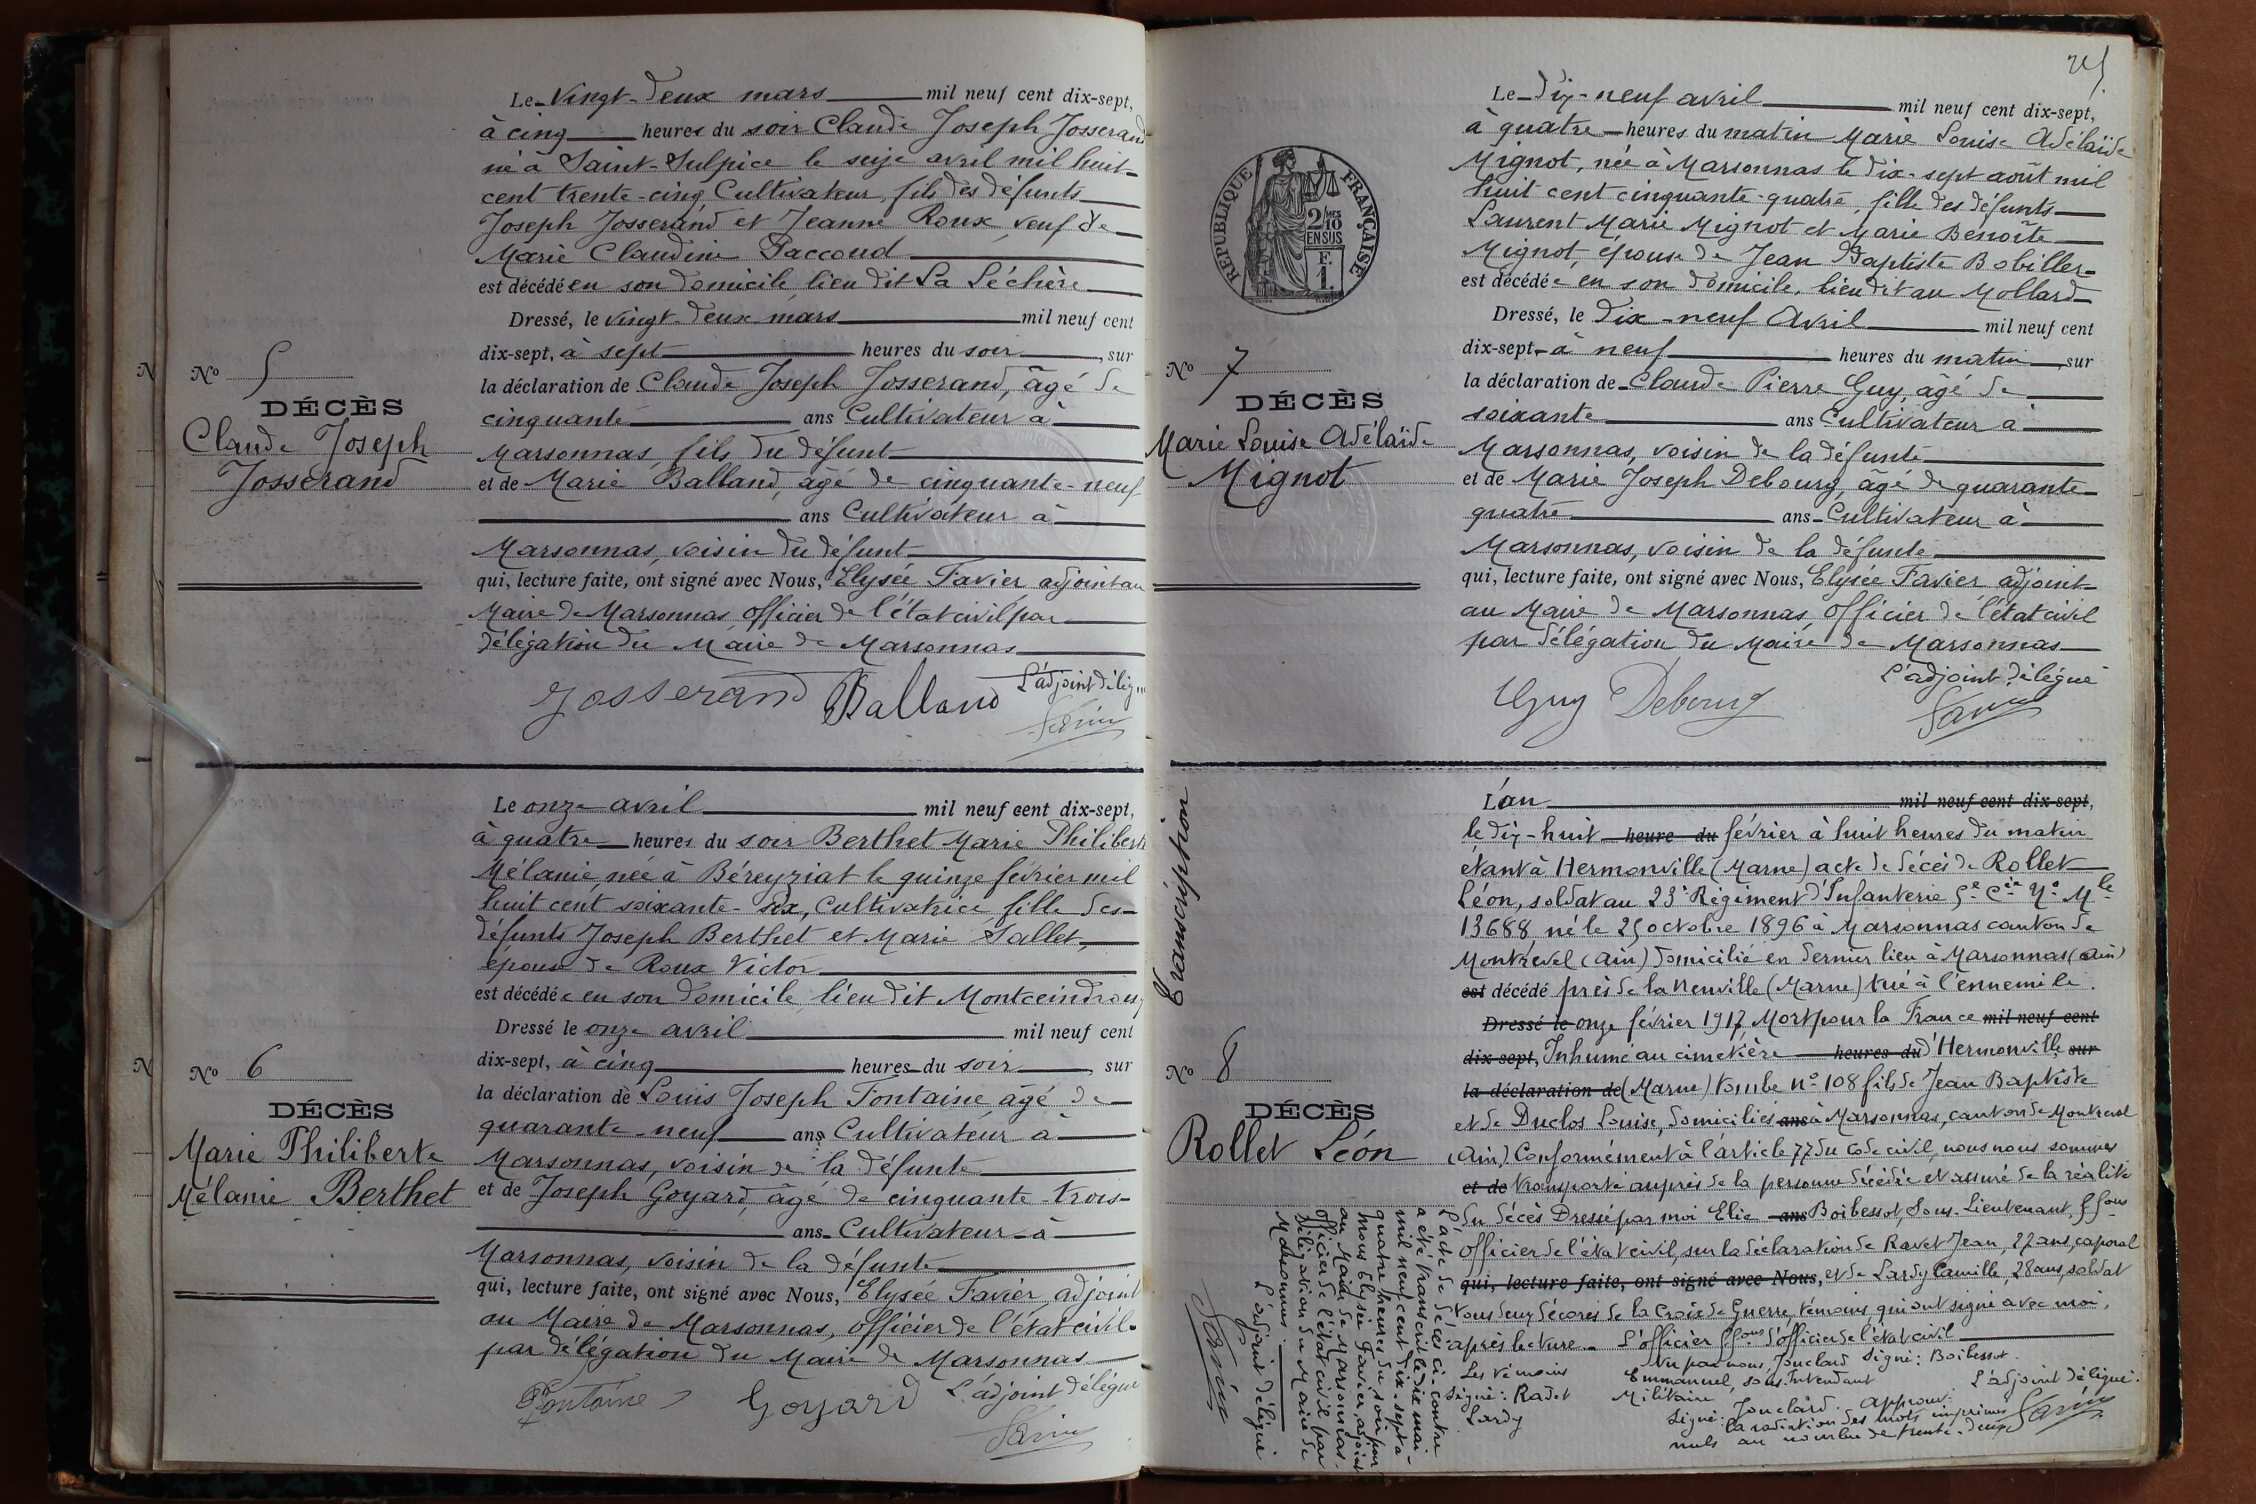 Le vingt-deux mars mil neuf cent dix-sept,
à cinq heures du soir Claude Joseph Josserand
né à Saint-Sulpice le seize avril mil huit
cent trente-cinq Cultivateur, fils des défunts
Joseph Josserand et Jeanne Roux, veuf de
Marie Claudine Paccoud
est décédé en son domicile, lieu dit La Léchère
Dressé, le vingt-deux mars mil neuf cent
dix-sept, à sept heures du soir, sur
la déclaration de Claude Joseph Josserand, âgé de
cinquante ans Cultivateur à
Marsonnas, fils du défunt
et de Marie Balland, âgé de cinquante-neuf
ans Cultivateur à
Marsonnas, voisin du défunt
qui, lecture faite, ont signé avec Nous, Elysée Favier adjoint au
Maire de Marsonnas officier de l'état civil par
délégation du Maire de Marsonnas
L'adjoint délégué
Josserand Balland
Favier
No 5
DÉCÈS
Claude Joseph
Josserand
Le onze avril mil neuf cent dix-sept,
à quatre heures du soir Berthet Marie Philiberte
Mélanie, née à Béreyziat le quinze février mil
huit cent soixante-six, Cultivatrice, fille des
défunts Joseph Berthet et Marie Sallet,
épouse de Roux Victor
est décédée en son domicile, lieu dit Montceindroux
Dressé le onze avril mil neuf cent
dix-sept, à cinq heures du soir, sur
la déclaration de Louis Joseph Fontaine âgé de
quarante-neuf ans Cultivateur à
Marsonnas, voisin de la défunte
et de Joseph Goyard, âgé de cinquante-trois
ans Cultivateur à
Marsonnas, voisin de la défunte
qui, lecture faite, ont signé avec Nous, Elysée Favier adjoint
au Maire de Marsonnas, officier de l'état civil
par délégation du Maire de Marsonnas
L'adjoint délégué
Fontaine Goyard
Favier
No 6
DÉCÈS
Marie Philiberte
Mélanie Berthet
Le dix-neuf avril mil neuf cent dix-sept,
à quatre heures du matin Marie Louise Adélaïde
Mignot, née à Marsonnas le dix-sept août mil
huit cent cinquante-quatre, fille des défunts
Laurent Marie Mignot et Marie Benoîte
Mignot, épouse de Jean Baptiste Bobiller
est décédée en son domicile, lieu dit au Mollard
Dressé, le dix-neuf Avril mil neuf cent
dix-sept à neuf heures du matin, sur
la déclaration de Claude Pierre Guy, âgé de
soixante ans Cultivateur à
Marsonnas, voisin de la défunte
et de Marie Joseph Debourg, âgé de quarante
quatre ans Cultivateur à
Marsonnas, voisin de la défunte
qui, lecture faite, ont signé avec Nous, Elysée Favier adjoint
au Maire de Marsonnas officier de l'état civil
par délégation du Maire de Marsonnas
L'adjoint délégué
Guy Debourg
Favier
RÉPUBLIQUE FRANÇAISE
2/10
EN SUS
1 F.
No 7
DÉCÈS
Marie Louise Adélaïde
Mignot
L'an mil neuf cent dix-sept,
le dix-huit heure du février à huit heures du matin
étant à Hermonville (Marne) acte de décès de Rollet
Léon, soldat au 23e Régiment d'Infanterie 5e Cie No Mle
13688 né le 25 octobre 1896 à Marsonnas canton de
Montrevel (Ain) domicilié en dernier lieu à Marsonnas (Ain)
est décédé près de la Neuville (Marne) tué à l'ennemi le
Dressé le onze février 1917, Mort pour la France mil neuf cent
dix-sept, Inhumé au cimetière heures du d'Hermonville sur
la déclaration de (Marne) tombe no 108 fils de Jean Baptiste
et de Duclos Louise, domiciliés ans à Marsonnas, canton de Montrevel
(Ain). Conformément à l'article 77 du Code civil, nous nous sommes
et de transporté auprès de la personne décédée et assuré de la réalité
du décès Dressé par moi Elie ans Boibessot, Sous-Lieutenant, ff ons
officier de l'état civil, sur la déclaration de Ravet Jean, 27 ans, caporal
qui, lecture faite, ont signé avec Nous, et de Lardy Camille, 28 ans, soldat
tous deux décorés de la Croix de Guerre, témoins, qui ont signé avec moi,
après lecture. L'officier ff ons d'officier de l'état civil
Les témoins Vu par nous, Jouclard Signé: Boibessot
Emmanuel, sous-Intendant L'adjoint délégué.
Signé: Radet Militaire
Lardy Signé: Jouclard. Approuvé
la radiation des mots imprimés Favier
nuls au nombre de trente-deux
Transcription
No 8
DÉCÈS
Rollet Léon
L'acte de décès ci-contre
a été transcrit le dix mai
mil neuf cent dix-sept à
quatre heures du soir, par
nous Elysée Favier, adjoint
au Maire de Marsonnas,
officier de l'état civil par
délégation du Maire de
Marsonnas.
L'adjoint délégué
Favier